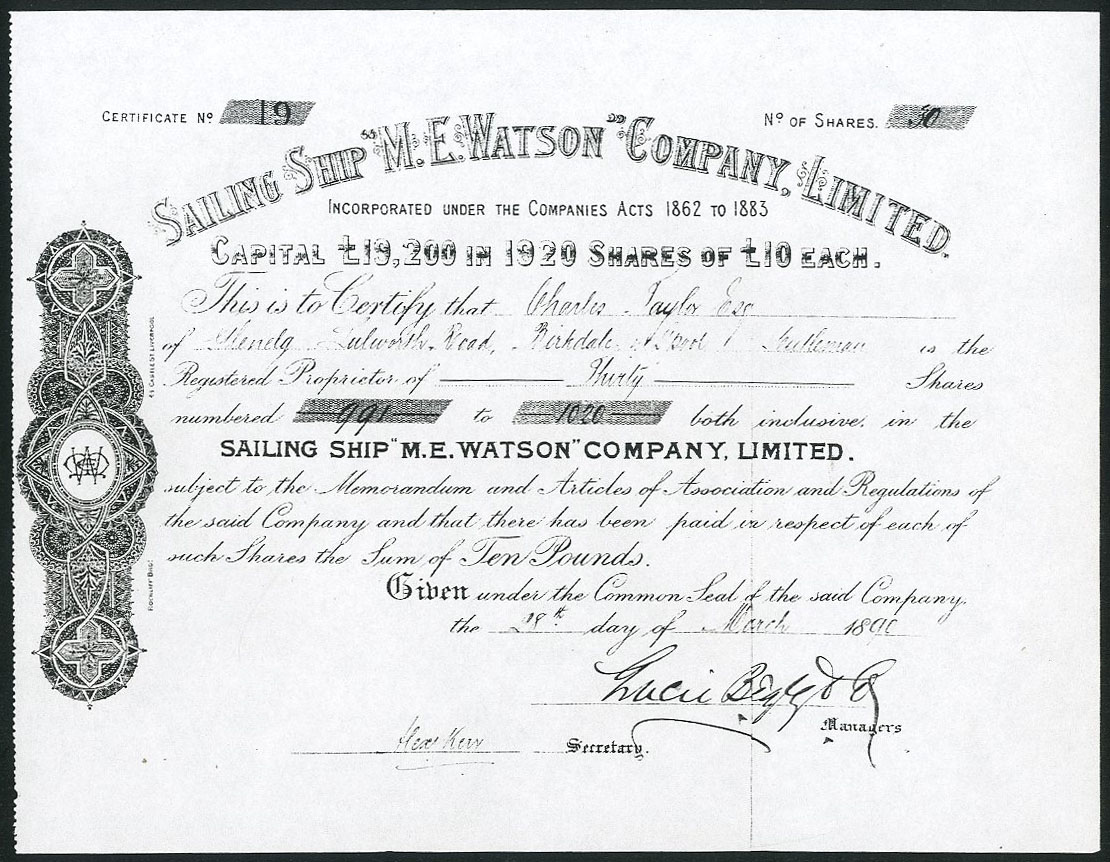 CERTIFICATE No 19
No OF SHARES. 30
SAILING SHIP "M.E. WATSON" COMPANY, LIMITED.
INCORPORATED UNDER THE COMPANIES ACTS 1862 TO 1883
CAPITAL £19,200 IN 1920 SHARES OF £10 EACH.
This is to Certify that Charles Taylor Esq
of Lulworth Road, Birkdale, Gentleman is the
Registered Proprietor of Thirty Shares
numbered 991 to 1020 both inclusive, in the
SAILING SHIP "M.E. WATSON" COMPANY, LIMITED.
subject to the Memorandum and Articles of Association and Regulations of
the said Company and that there has been paid in respect of each of
such Shares the Sum of Ten Pounds.
Given under the Common Seal of the said Company.
the 28th day of March 1890
Managers
Alexr Kerr Secretary.
ROCKLIFF BROS
CASTLE ST LIVERPOOL